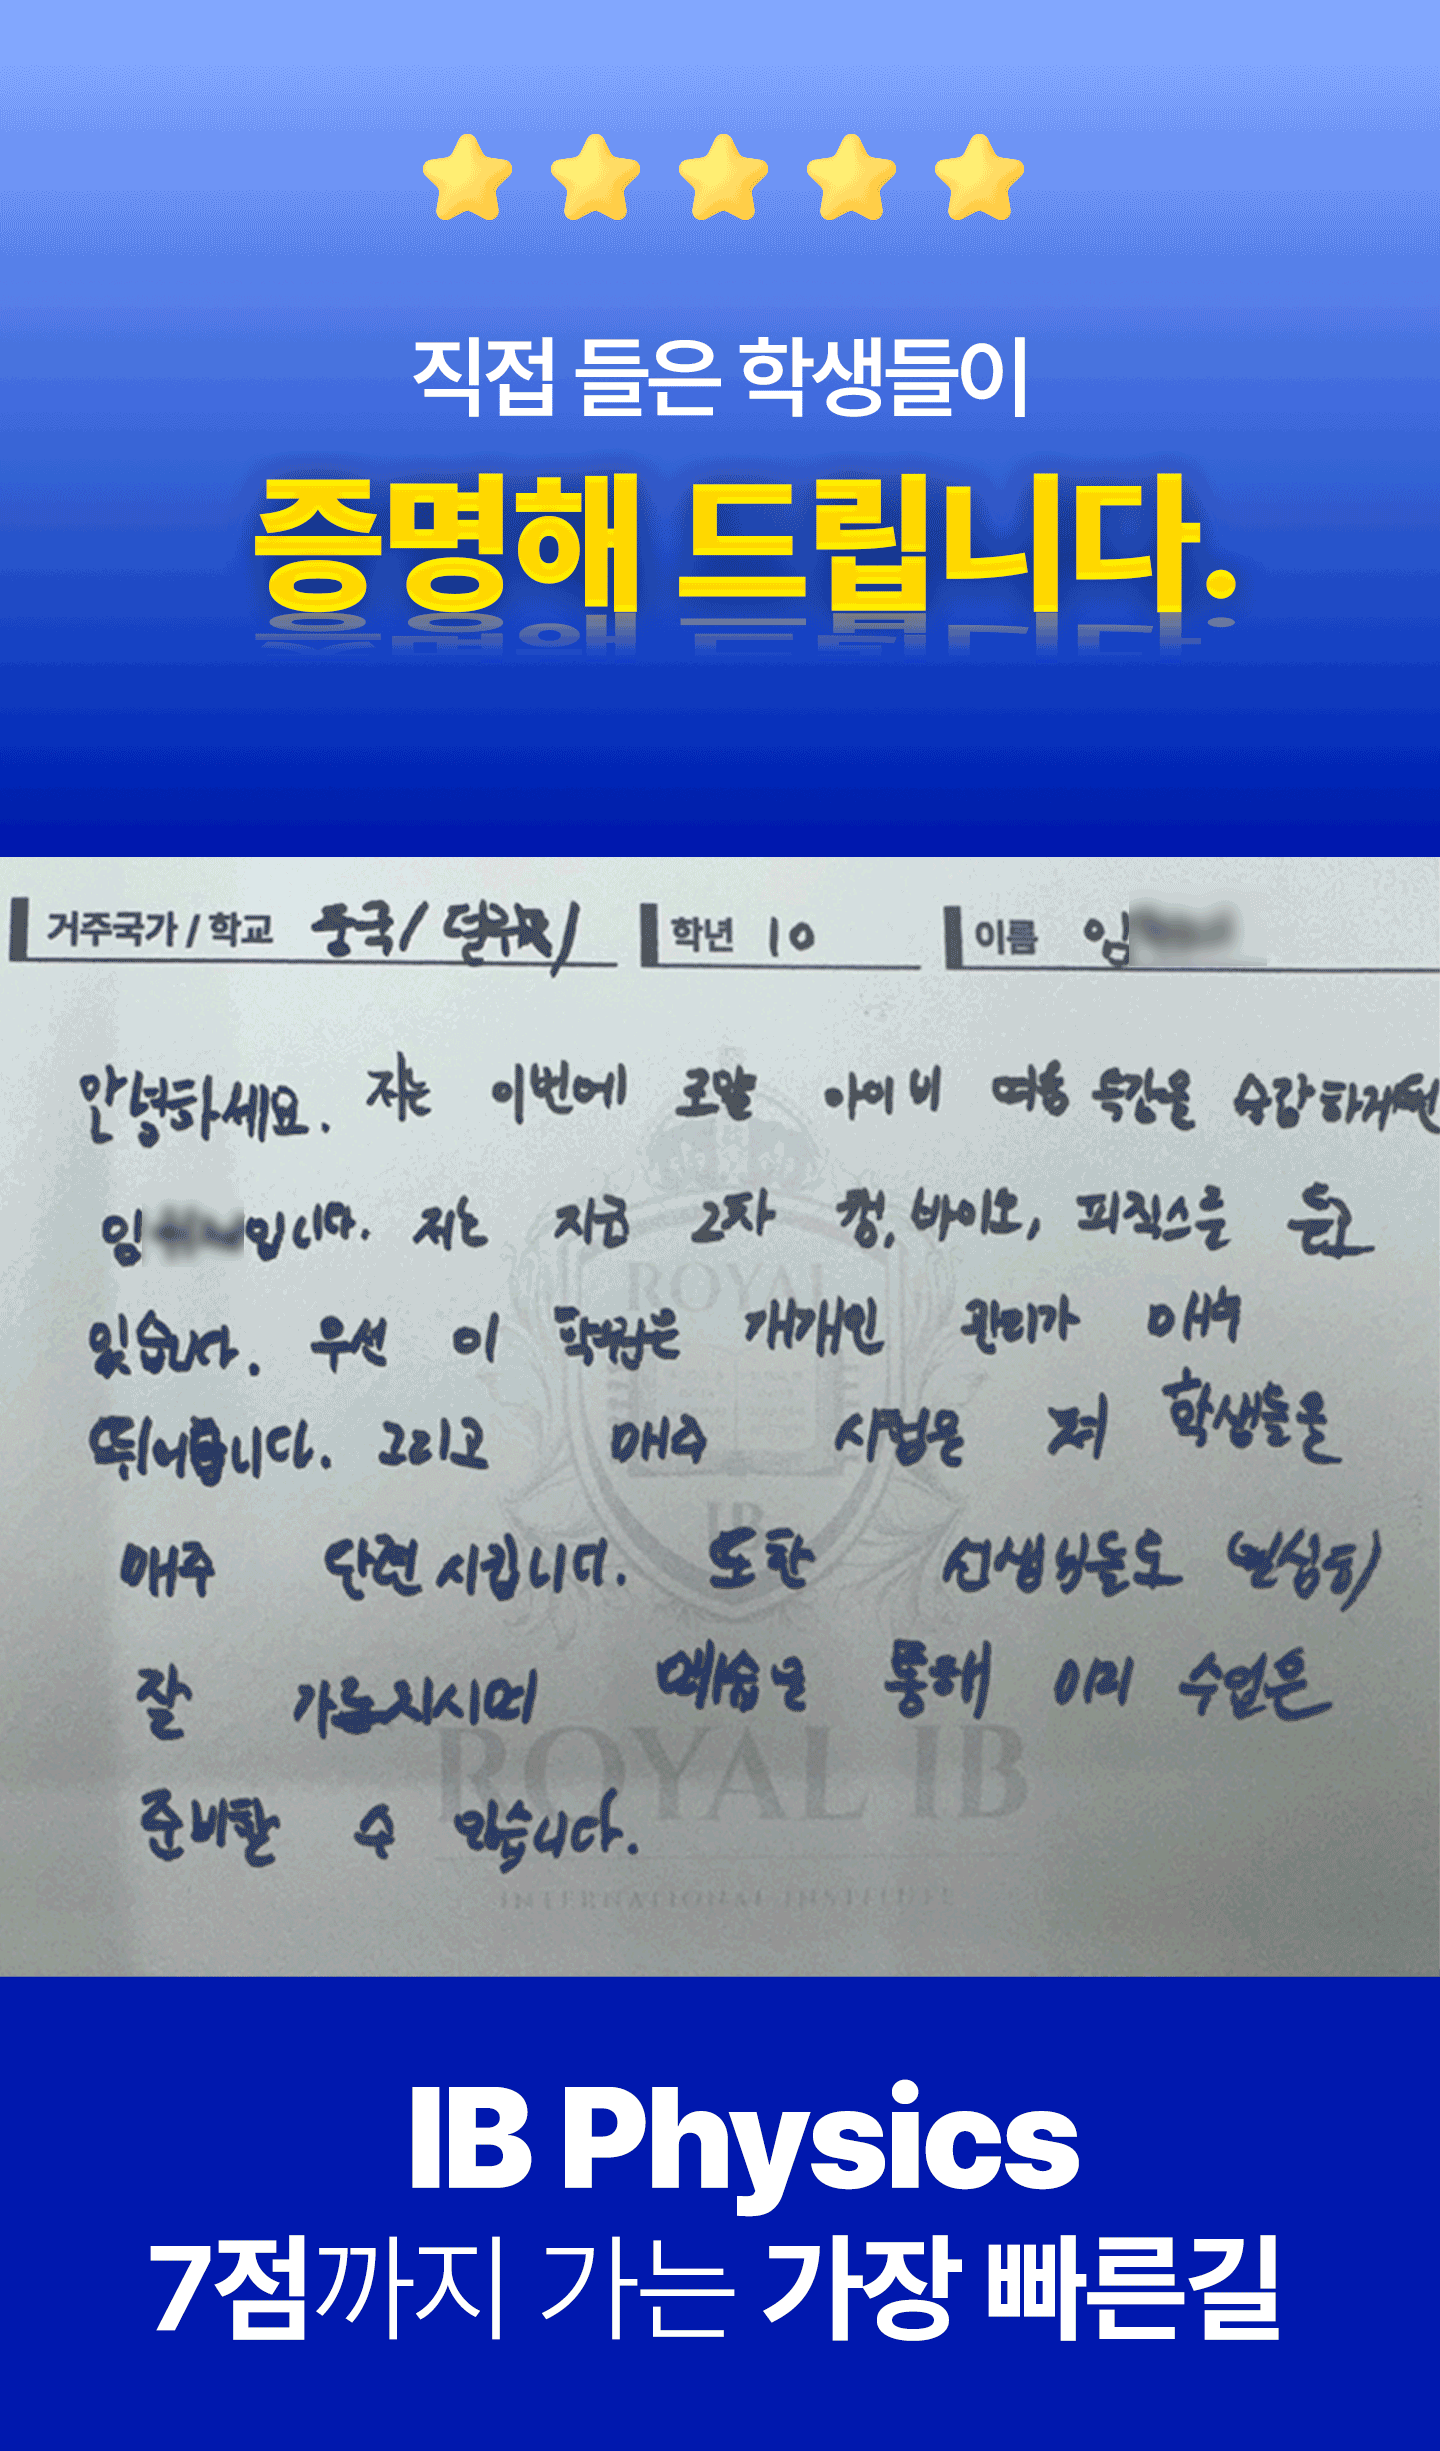 직접 들은 학생들이
증명해 드립니다.
거주국가 / 학교 중국/ 덜위치 학년 10 이름 임
안녕하세요. 저는 이번에 로얄 아이비 여름 특강을 수강하게된
임 입니다. 저는 지금 2차 켐, 바이오, 피직스를 듣고
있습니다. 우선 이 학원은 개개인 관리가 매우
뛰어납니다. 그리고 매주 시험은 저 학생들을
매주 단련시킵니다. 또한 선생님들도 열심히
잘 가르치시며 예습을 통해 이미 수업을
준비할 수 있습니다.
ROYAL
IB
ROYAL IB
INTERNATIONAL INSTITUTE
IB Physics
7점까지 가는 가장 빠른길